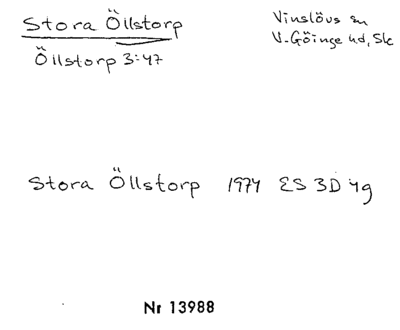 Stora Öllstorp
Öllstorp 3:47
Vinslövs sn
V. Göinge hd, Sk
Stora Öllstorp 1974 ES 3D 4g
Nr 13988